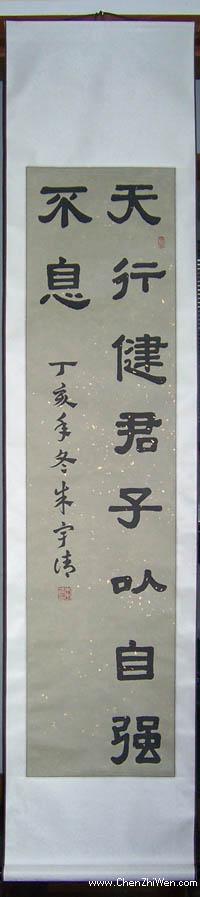 天行健君子以自强
不息
丁亥年冬朱宇清
www.ChenZhiWen.com